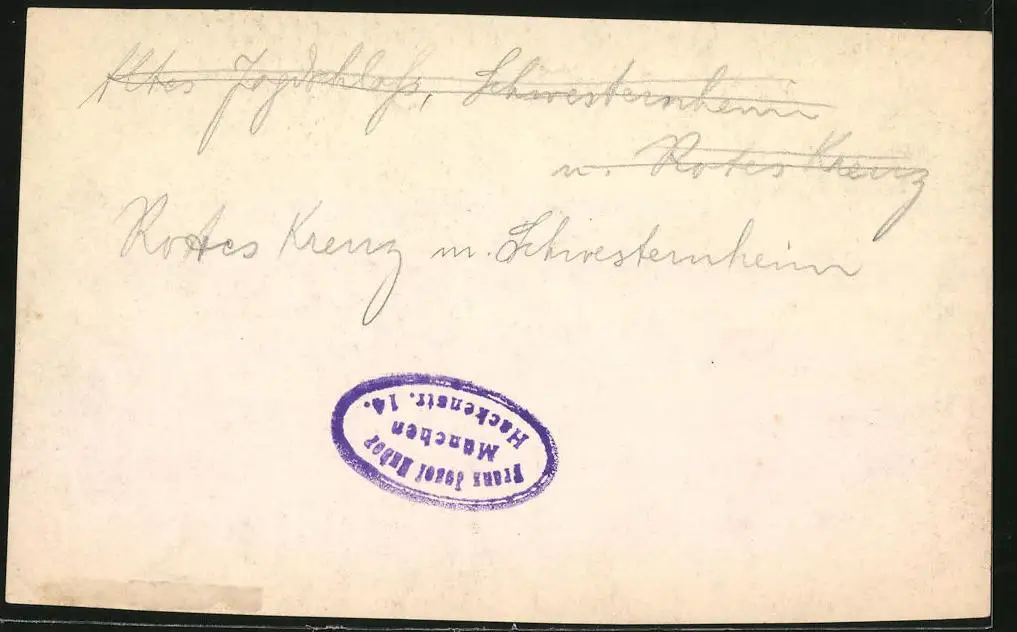 Altes Jagdschloß, Schwesternheim
u. Rotes Kreuz
Rotes Kreuz u. Schwesternheim
Franz Josef Huber
München
Hackenstr. 14.